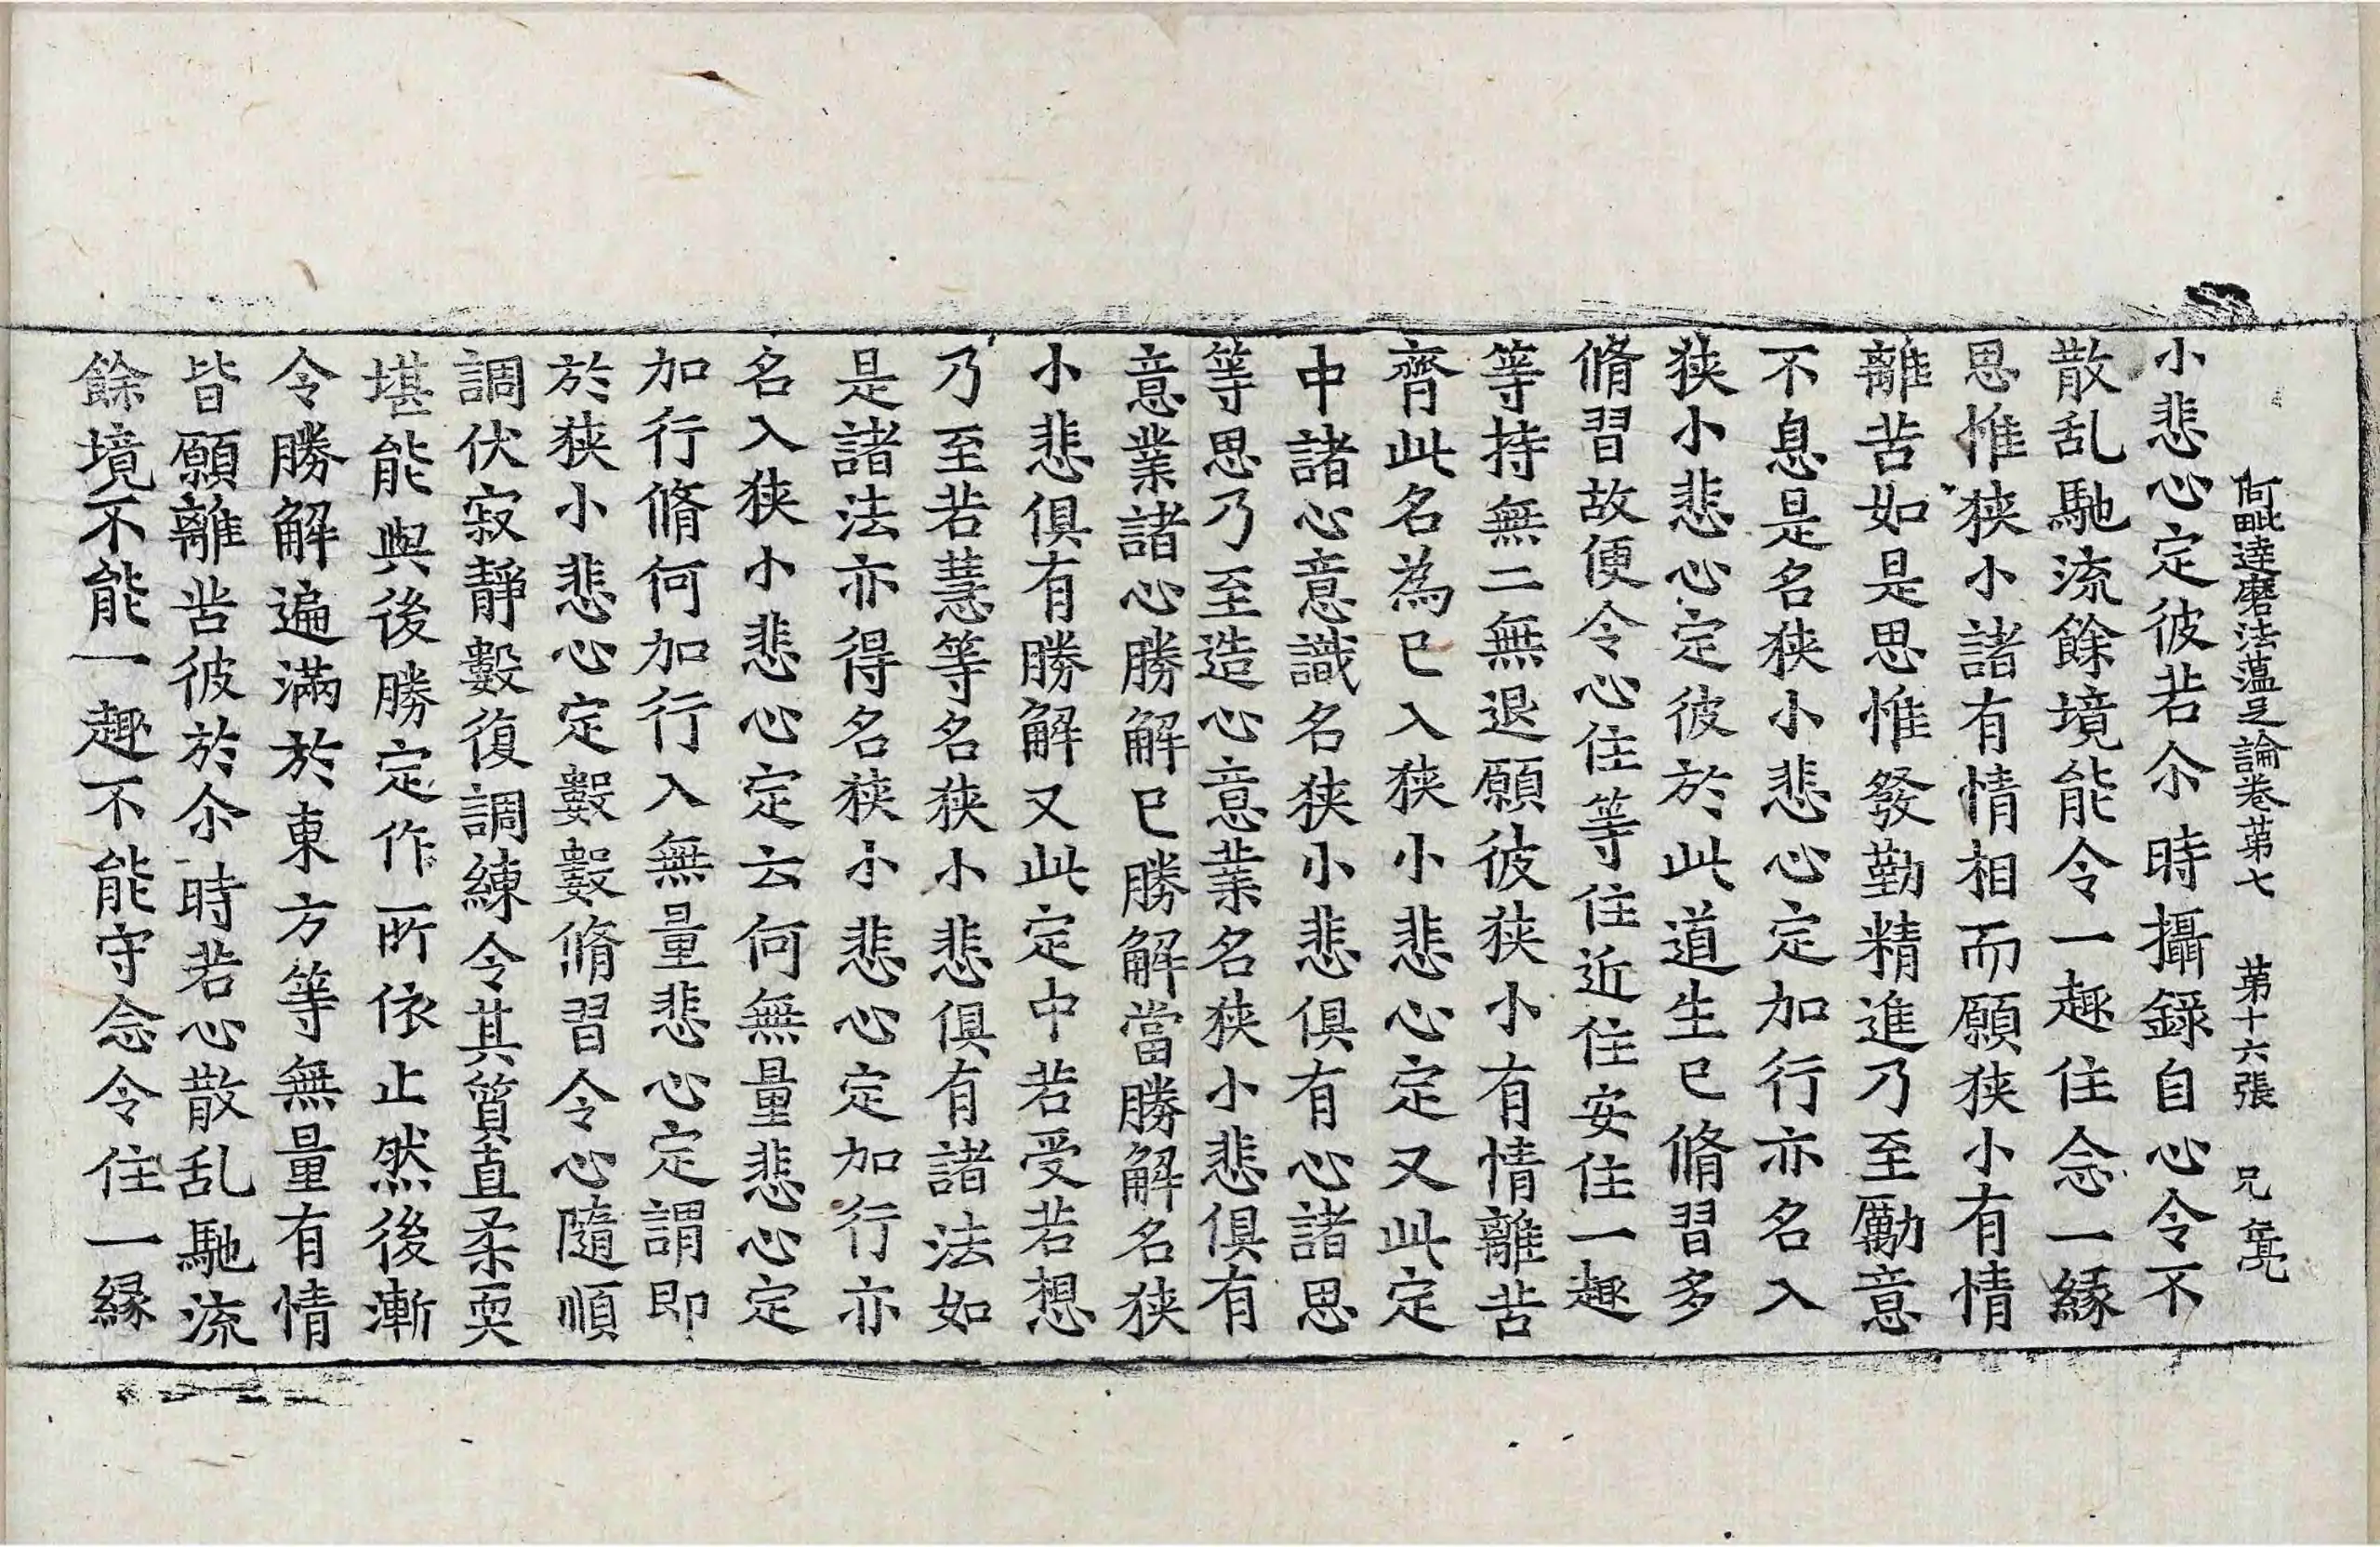 阿毗達磨法蘊足論卷第七 第十六張 兄
小悲心定彼若尒時攝錄自心令不
散乱馳流餘境能令一趣住念一緣
思惟狹小諸有情相而願狹小有情
離苦如是思惟發勤精進乃至勵意
不息是名狹小悲心定加行亦名入
狹小悲心定彼於此道生已脩習多
脩習故便令心住等住近住安住一趣
等持無二無退願彼狹小有情離苦
齊此名為已入狹小悲心定又此定
中諸心意識名狹小悲俱有心諸思
等思乃至造心意業名狹小悲俱有
意業諸心勝解已勝解當勝解名狹
小悲俱有勝解又此定中若受若想
乃至若慧等名狹小悲俱有諸法如
是諸法亦得名狹小悲心定加行亦
名入狹小悲心定云何無量悲心定
加行脩何加行入無量悲心定謂即
於狹小悲心定數數脩習令心隨順
調伏寂靜數復調練令其質直柔耎
堪能與後勝定作所依止然後漸
令勝解遍滿於東方等無量有情
皆願離苦彼於尒時若心散乱馳流
餘境不能一趣不能守念令住一緣